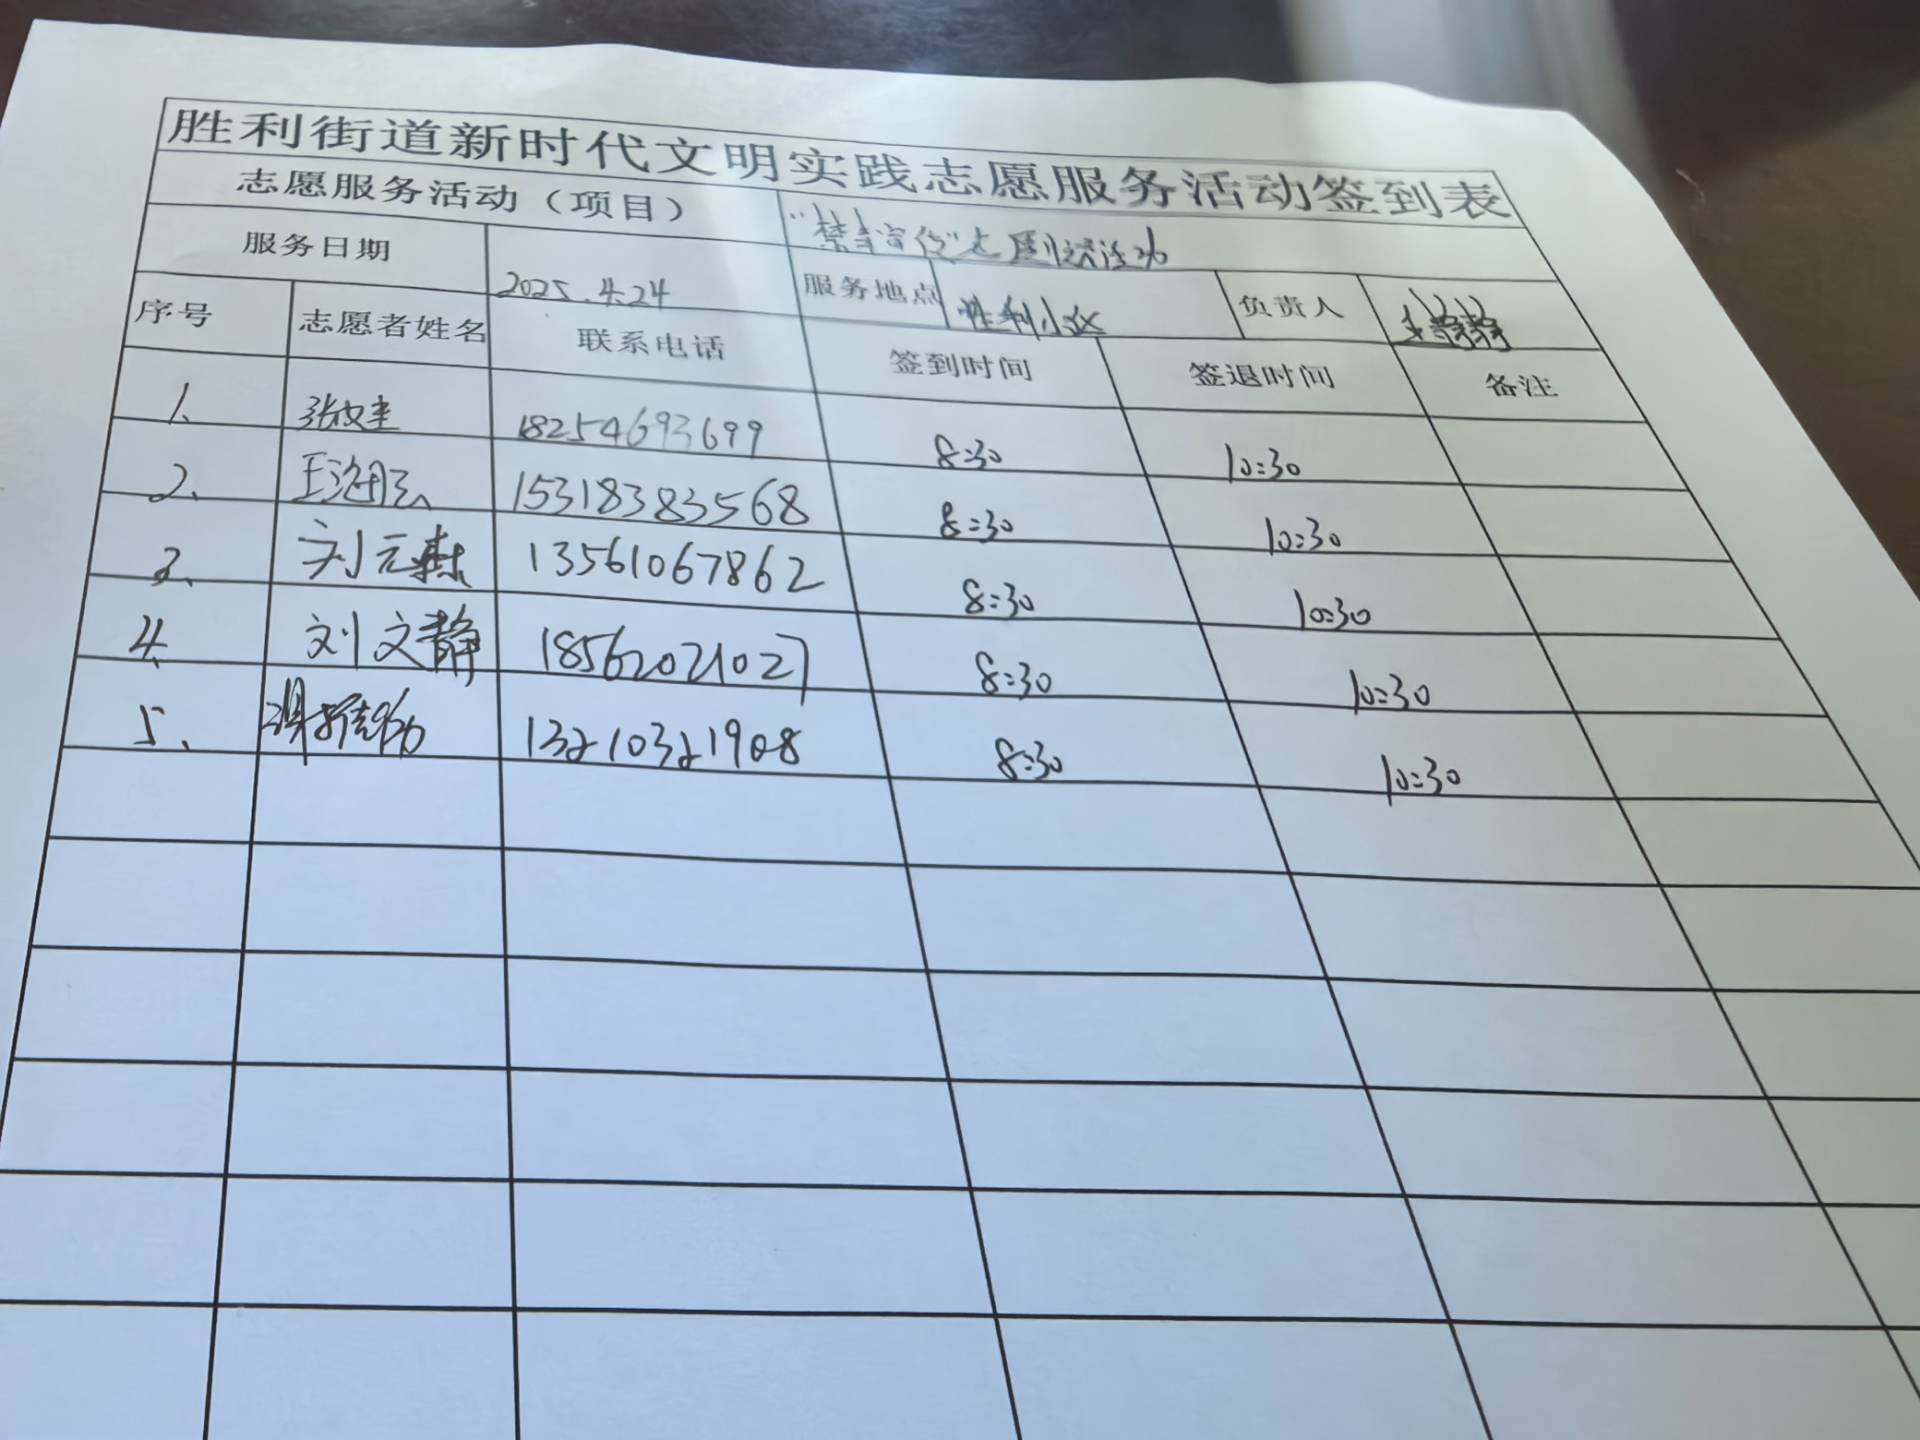 胜利街道新时代文明实践志愿服务活动签到表
志愿服务活动（项目） "禁毒宣传"志愿服务活动
服务日期 2025.4.24 服务地点 胜利小区 负责人
序号 志愿者姓名 联系电话 签到时间 签退时间 备注
1、 18254693699 8:30 10:30
2、 15318383568 8:30 10:30
3、 刘元 13561067862 8:30 10:30
4、 刘文静 18562021027 8:30 10:30
5、 13210321908 8:30 10:30